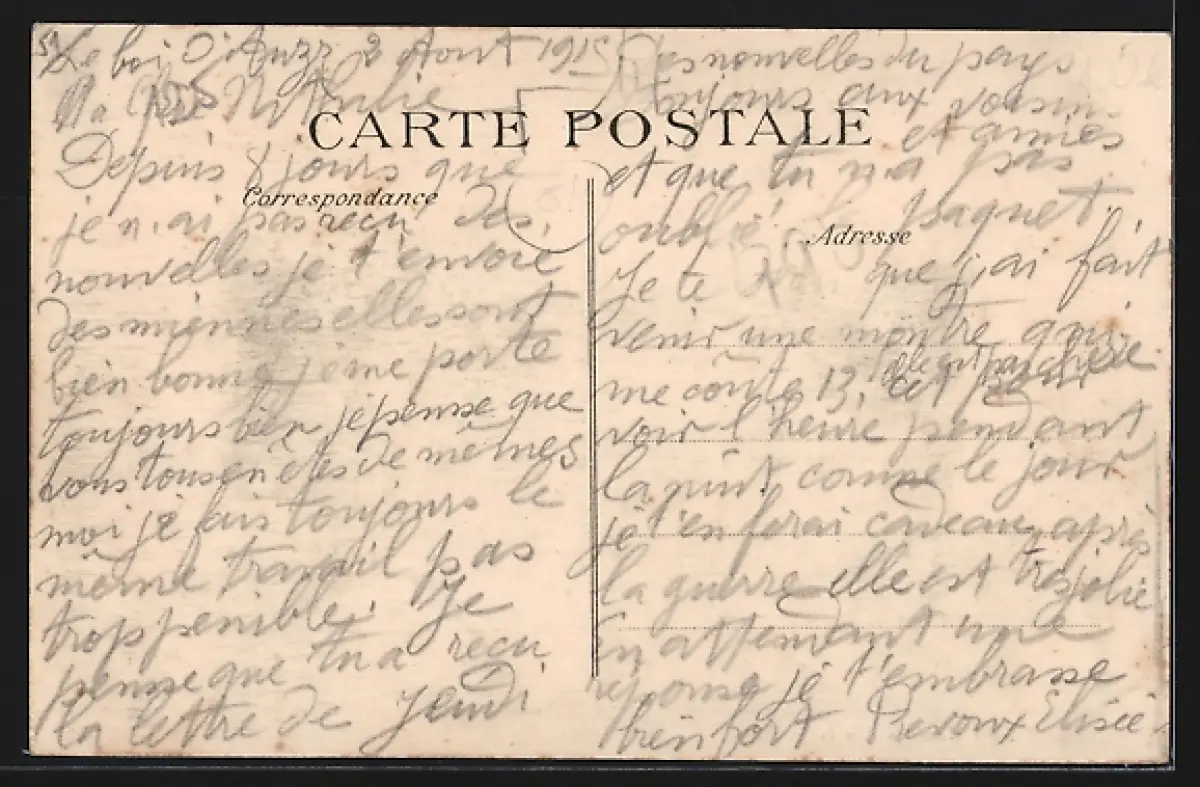 Le boi d'Auzy 2 Aout 1915
Ma Nathalie
CARTE POSTALE
Depuis 8 jours que
Correspondance
je n.ai pas reçu des
nouvelles je t'envoie
des miennes elles sont
bien bonne, je me porte
toujours bien, je pense que
vous tous en êtes de mêmes
moi je fais toujours le
même travail pas
trop penible. Je
pense que tu a reçu
la lettre de jeudi
des nouvelles du pays
toujours aux voisins
et amies
et que tu n.a pas
oublié le paquet.
Adresse
Je te que j'ai fait
venir une montre qui
me coûte 13, elle est pas chère
c'est pour
voir l'heure pendant
la nuit comme le jour
je t'en ferai cadeau après
la guerre elle est très jolie
En attendant une
réponse je t'embrasse
bien fort Elisée